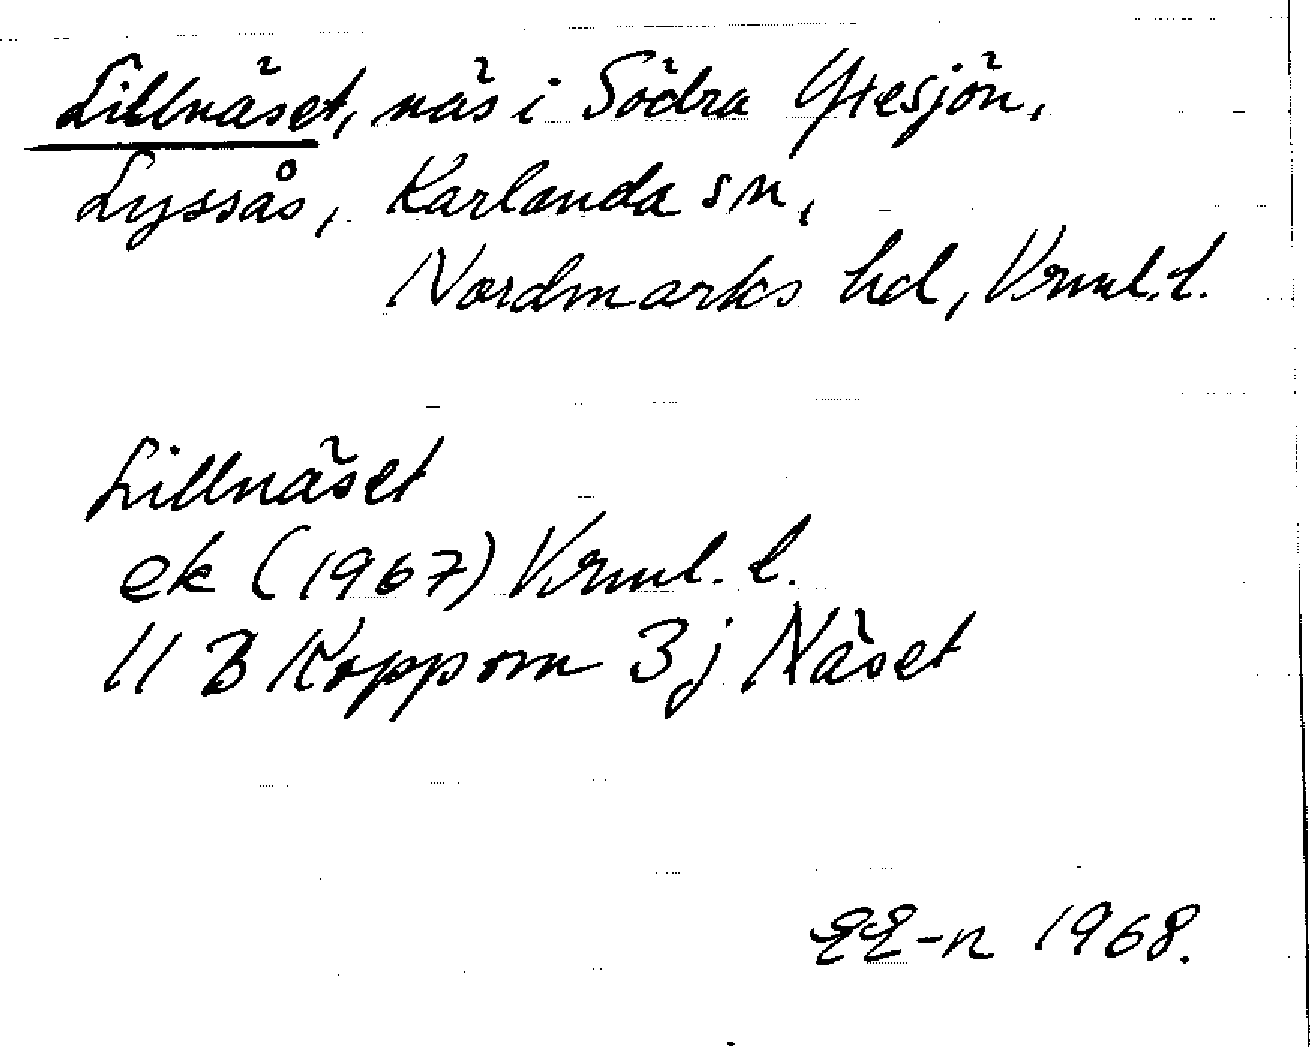 Lillnäset, näs i Södra Ytesjön,
Lyssås, Karlanda sn,
Nordmarks hd, Vrml. l.
Lillnäset
ek (1967) Vrml. l.
11 B Koppom 3j Näset
EE-n 1968.